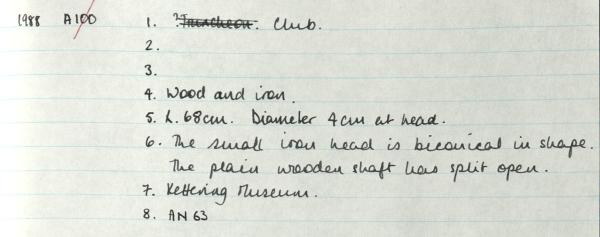 1988 A100 1. ?Truncheon. Club.
2.
3.
4. Wood and iron.
5. L. 68cm. Diameter 4cm at head.
6. The small iron head is biconical in shape.
The plain wooden shaft has split open.
7. Kettering Museum.
8. AN 63